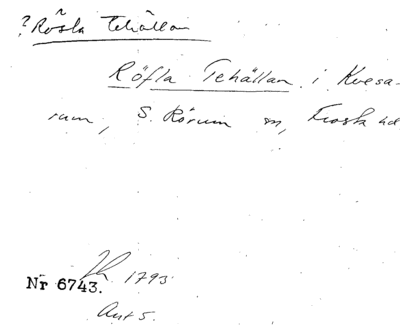 ? Rösla Tehällan
Röfla Tehällan i Kvesa-
rum, S. Rörum sn, Frosta hd
Nr 6743.
1793
Ant 5.